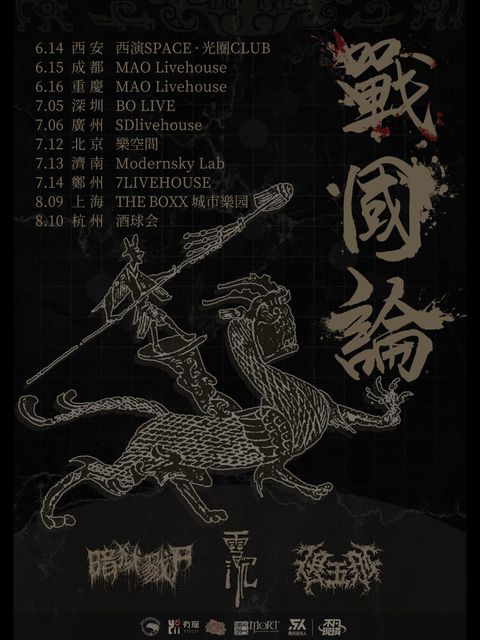 戰國論
6.14 西安 西演SPACE·光圈CLUB
6.15 成都 MAO Livehouse
6.16 重慶 MAO Livehouse
7.05 深圳 BO LIVE
7.06 廣州 SDlivehouse
7.12 北京 樂空間
7.13 濟南 Modernsky Lab
7.14 鄭州 7LIVEHOUSE
8.09 上海 THE BOXX 城市樂园
8.10 杭州 酒球会
暗獄戮尸
霾沉
有理
YOLII
MORT